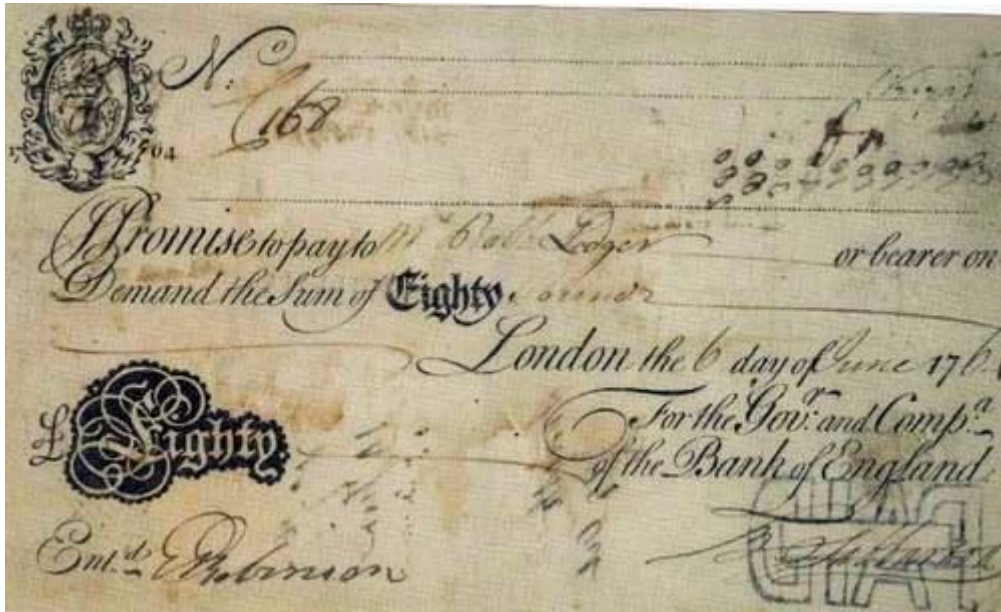 No
C168
I Promise to pay to Mr Robt Ledger or bearer on
Demand the Sum of Eighty Pounds
London the 6 day of June 176
For the Govr and Compa
of the Bank of England
£ Eighty
Entd Robinson
PAID